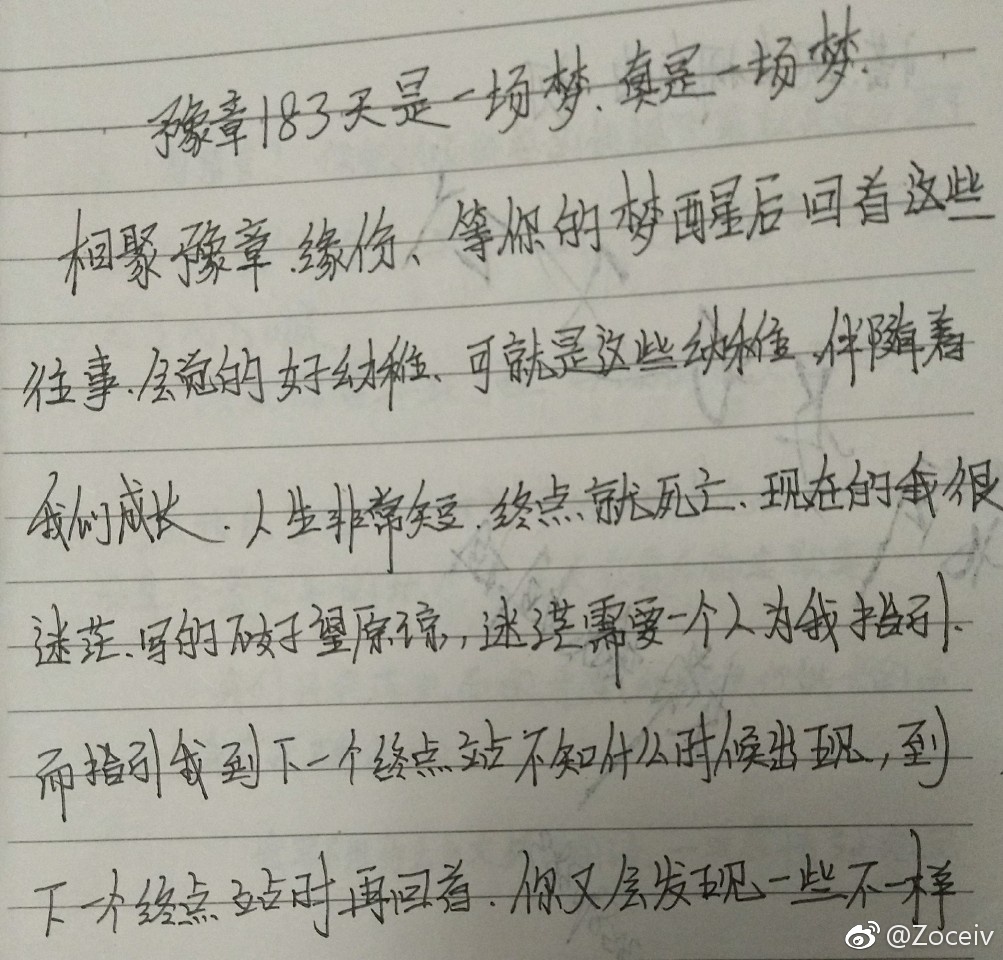 豫章183天是一场梦.真是一场梦.
相聚豫章.缘份、等你的梦醒后回首这些
往事.会觉的好幼稚、可就是这些幼稚.伴随着
我们成长.人生非常短.终点就死亡、现在的我很
迷茫.写的不好望原谅,迷茫需要一个人为我指引.
而指引我到下一个终点站不知什么时候出现,到
下一个终点站时再回首.你又会发现一些不一样
@Zoceiv